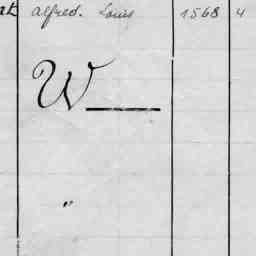 alfred. Louis 1568 4
W
"